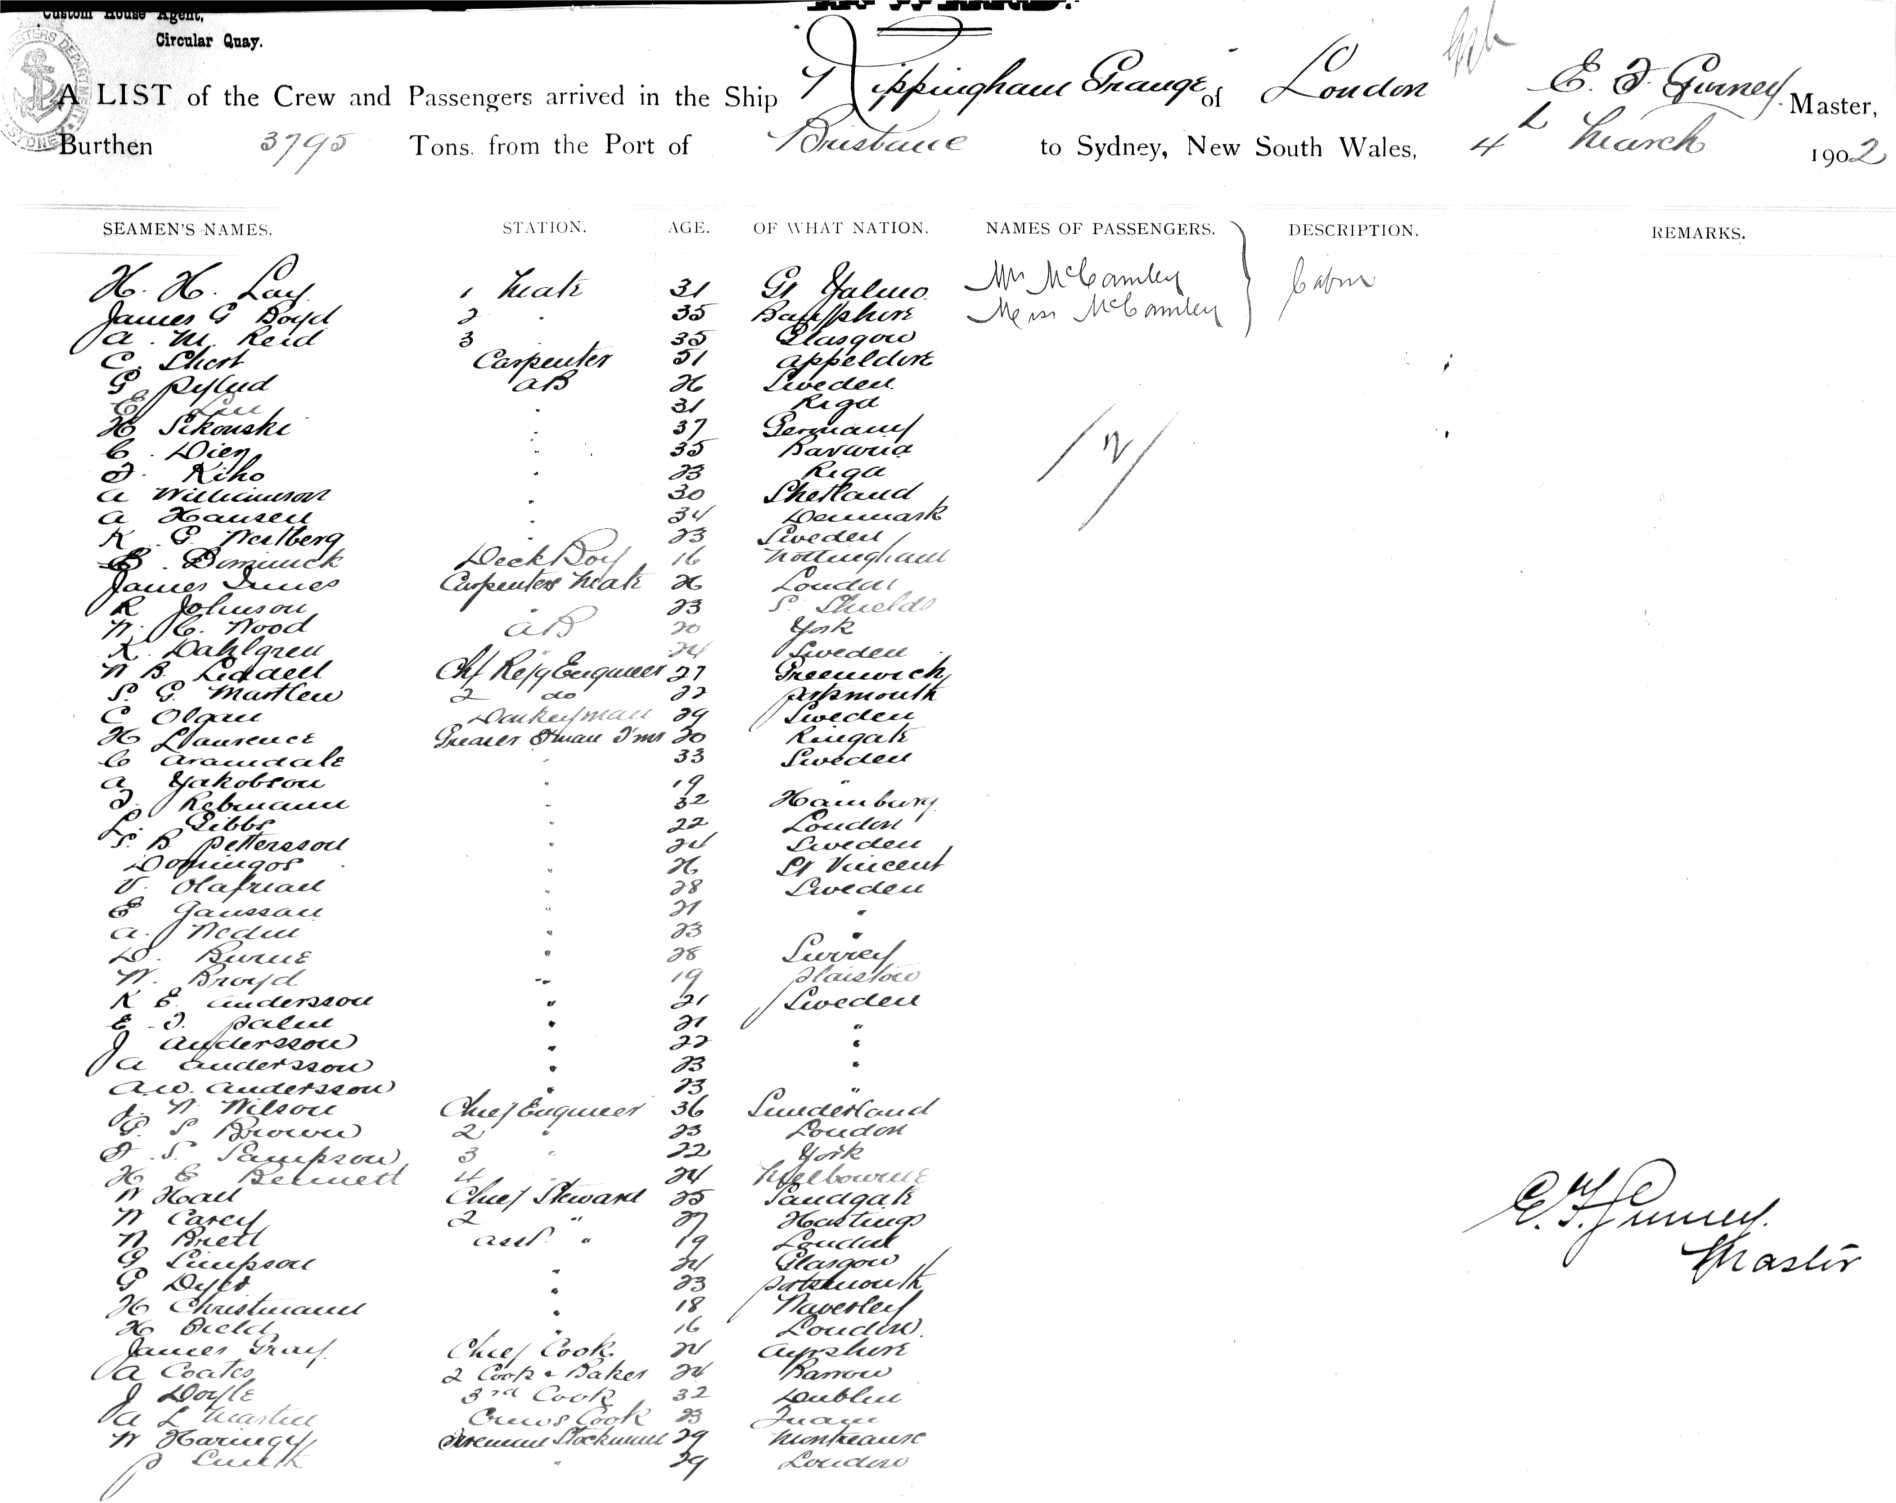 Custom House Agent,
Circular Quay.
A LIST of the Crew and Passengers arrived in the Ship Rippingham Grange of London E. F. Gurney Master,
Burthen 3795 Tons. from the Port of Brisbane to Sydney, New South Wales, 4th March 1902
SEAMEN'S NAMES. STATION. AGE. OF WHAT NATION. NAMES OF PASSENGERS. DESCRIPTION. REMARKS.
H. H. Lay 1 Mate 31 Gt Mr McCamley Cabin
James G Boyd 2 " 35 Banffshire Miss McCamley
A. M. Reid 3 35 Glasgow
C. Short Carpenter 51 Appeldore
G Rylud AB 26 Sweden
E 31 Riga
H Sikouski " 37 Germany
C. Dien " 35 Bavaria
J. Kiho " 23 Riga
A Williamson " 30 Shetland
A Hansen " 34 Denmark
K. G. Westberg 23 Sweden
E. Dominick Deck Boy 16 Nottingham
James Innes Carpenters Mate 26 London
R Johnson " 23 S. Shields
W. C. Wood AB 20 York
K. Dahlgren " 24 Sweden
W B. Liddell Chf Refg Engineer 27 Greenwich
S. G. Martlew 2 do 22 Portsmouth
C Olgan Donkeyman 29 Sweden
H Laurence Greaser & Trmrs 20 Ringate
C Aramdale " 33 Sweden
A Yakobson " 19 "
J. Rebmann " 32 Hamburg
L. Gibbs " 22 London
S. B Pettersson " 24 Sweden
Domingos " 26 St Vincent
V. Olafman " 28 Sweden
E Gaussau " 21 "
A. Nedin " 23 "
D. Burne " 28 Surrey
W. Broyd " 19 Plaistow
K E. Andersson " 21 Sweden
E. J. Palm " 21 "
J Andersson " 22 "
A Andersson " 23 "
A.W. Andersson " 23 "
J. W Wilson Chief Engineer 36 Sunderland
G. S Brown 2 " 23 London
F. S. Sampson 3 " 22 York
H E Bennett 4 " 24 Melbourne
W Hall Chief Steward 25 Sandgate
W Carey 2 " 27 Hastings
W Brett asst. " 19 London
G Simpson " 24 Glasgow
G Dyer " 23 Portsmouth
H Christmann " 18 Waverley
H Field " 16 London
James Gray Chief Cook 24 Ayrshire
A Coates 2 Cook & Baker 24 Barrow
J Doyle 3rd Cook 32 Dublin
A L Martin Crews Cook 23
W Haringey Foremen Stockmen 29
P Smith " 29 London
E. F. Gurney.
Master